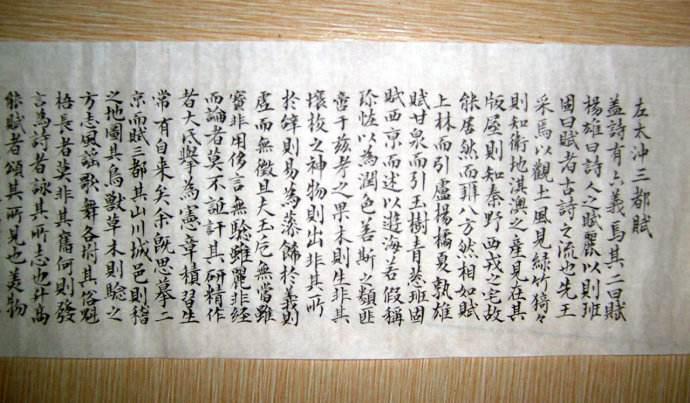 左太沖三都賦
蓋詩有六義焉其二曰賦
楊雄曰詩人之賦麗以則班
固曰賦者古詩之流也先王
采焉以觀土風見綠竹猗々
則知衛地淇澳之產見在其
版屋則知秦野西戎之宅故
能居然而辨八方然相如賦
上林而引盧楊橘夏孰雄
賦甘泉而引玉樹青蔥班固
賦西京而述以遊海若假稱
珍怪以為潤色若斯之類匪
啻于茲考之果木則生非其
壤挍之神物則出非其所
於辝則易為藻飾於義則
虛而無徵且夫玉卮無當雖
寶非用侈言無驗雖麗非經
而論者莫不詆訐其研精作
者大氐舉為憲章積習生
常有自来矣余既思摹二
京而賦三都其山川城邑則稽
之地圖其鳥獸草木則驗之
方志風謠歌舞各附其俗魁
梧長者莫非其舊何則發
言為詩者詠其所志也升高
能賦者頌其所見也美物